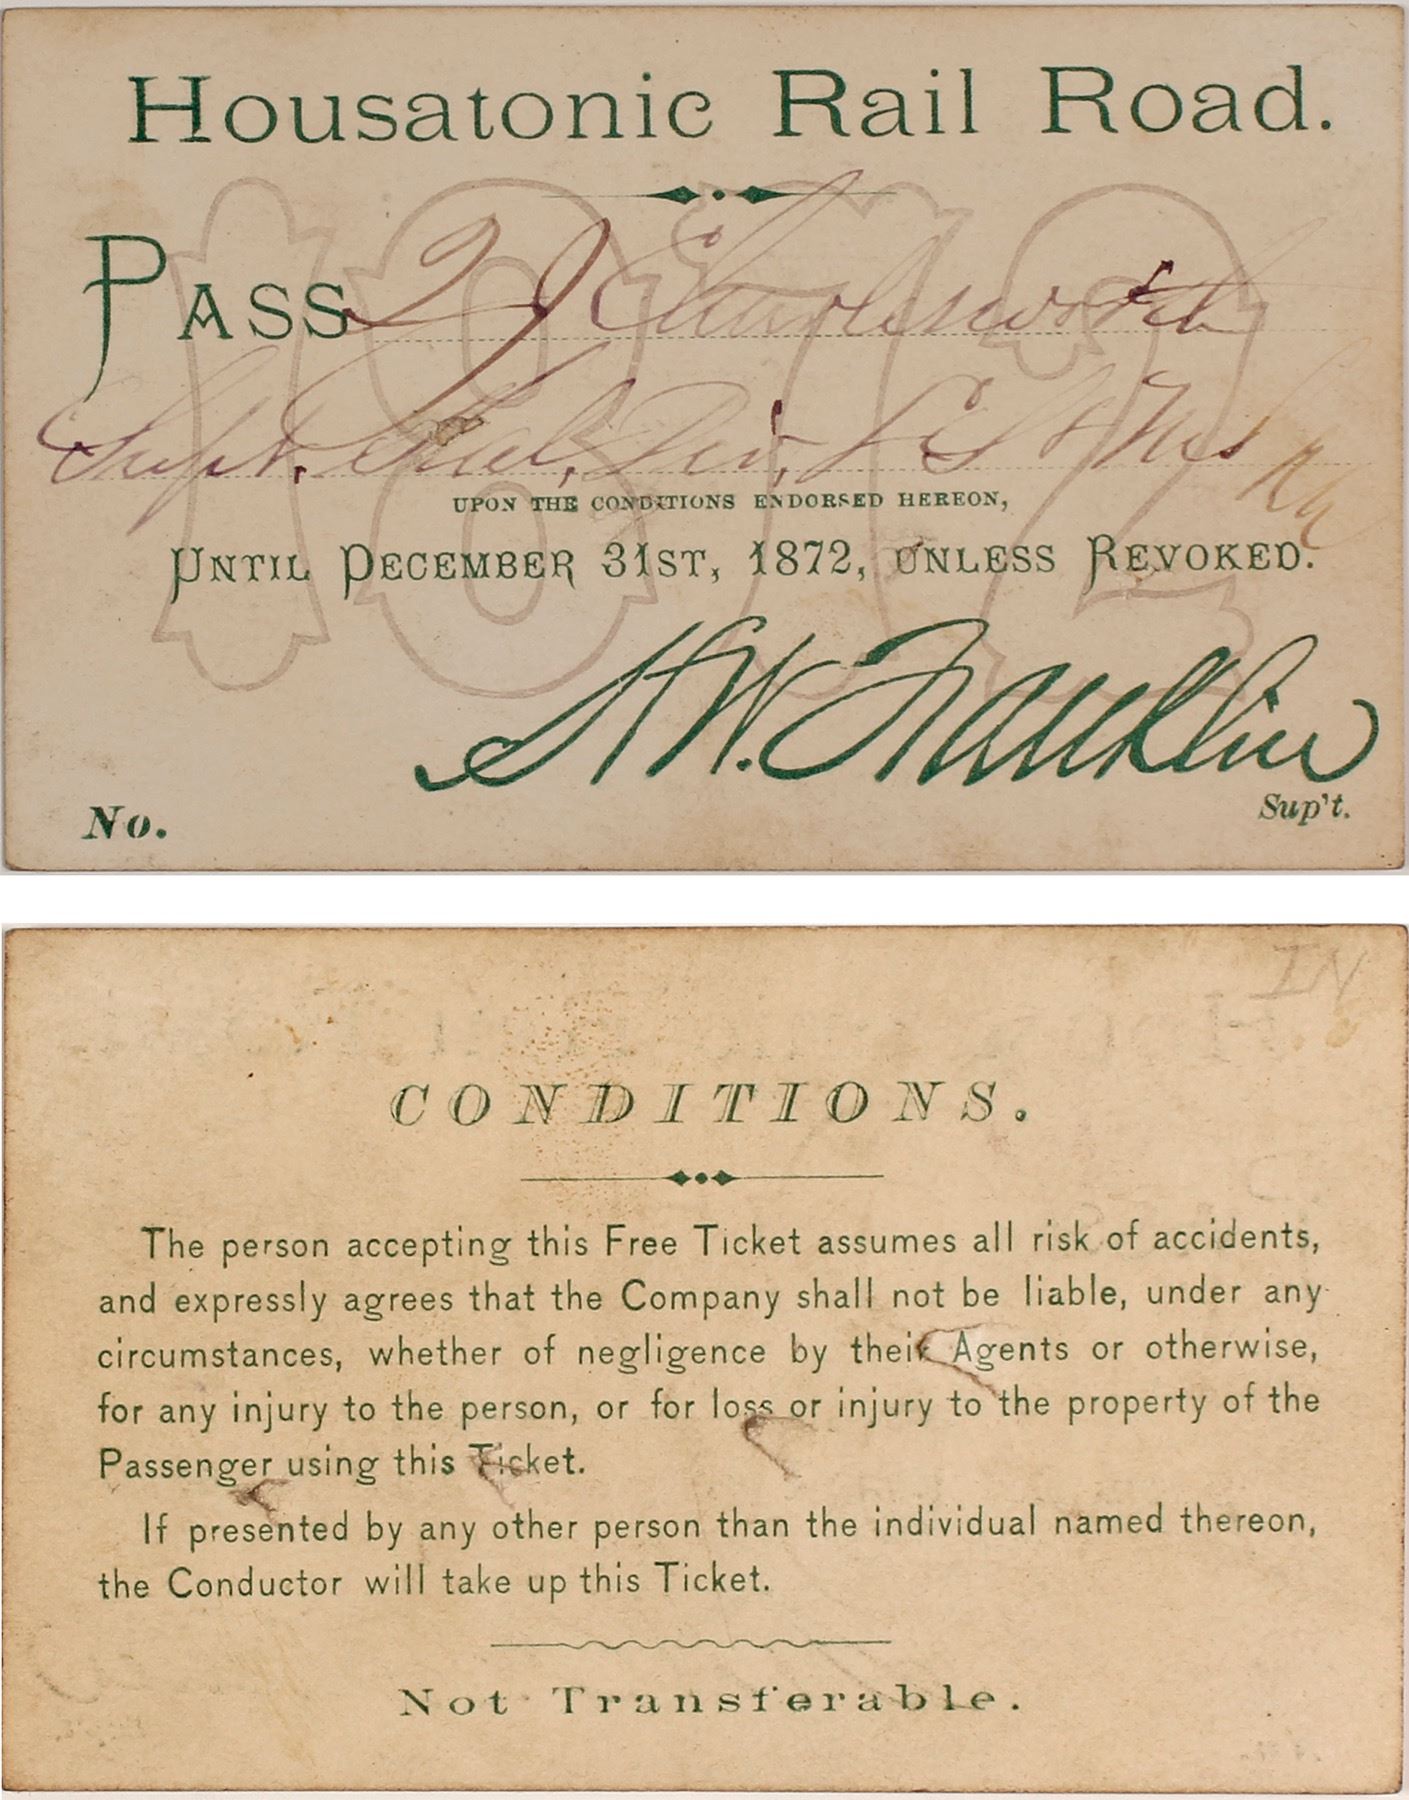 Housatonic Rail Road.
1872
PASS
Supt. Div. LS & MS Ry
UPON THE CONDITIONS ENDORSED HEREON,
UNTIL DECEMBER 31ST, 1872, UNLESS REVOKED.
H W. Franklin
Sup't.
No.
IN
CONDITIONS.
The person accepting this Free Ticket assumes all risk of accidents,
and expressly agrees that the Company shall not be liable, under any
circumstances, whether of negligence by their Agents or otherwise,
for any injury to the person, or for loss or injury to the property of the
Passenger using this Ticket.
If presented by any other person than the individual named thereon,
the Conductor will take up this Ticket.
Not Transferable.